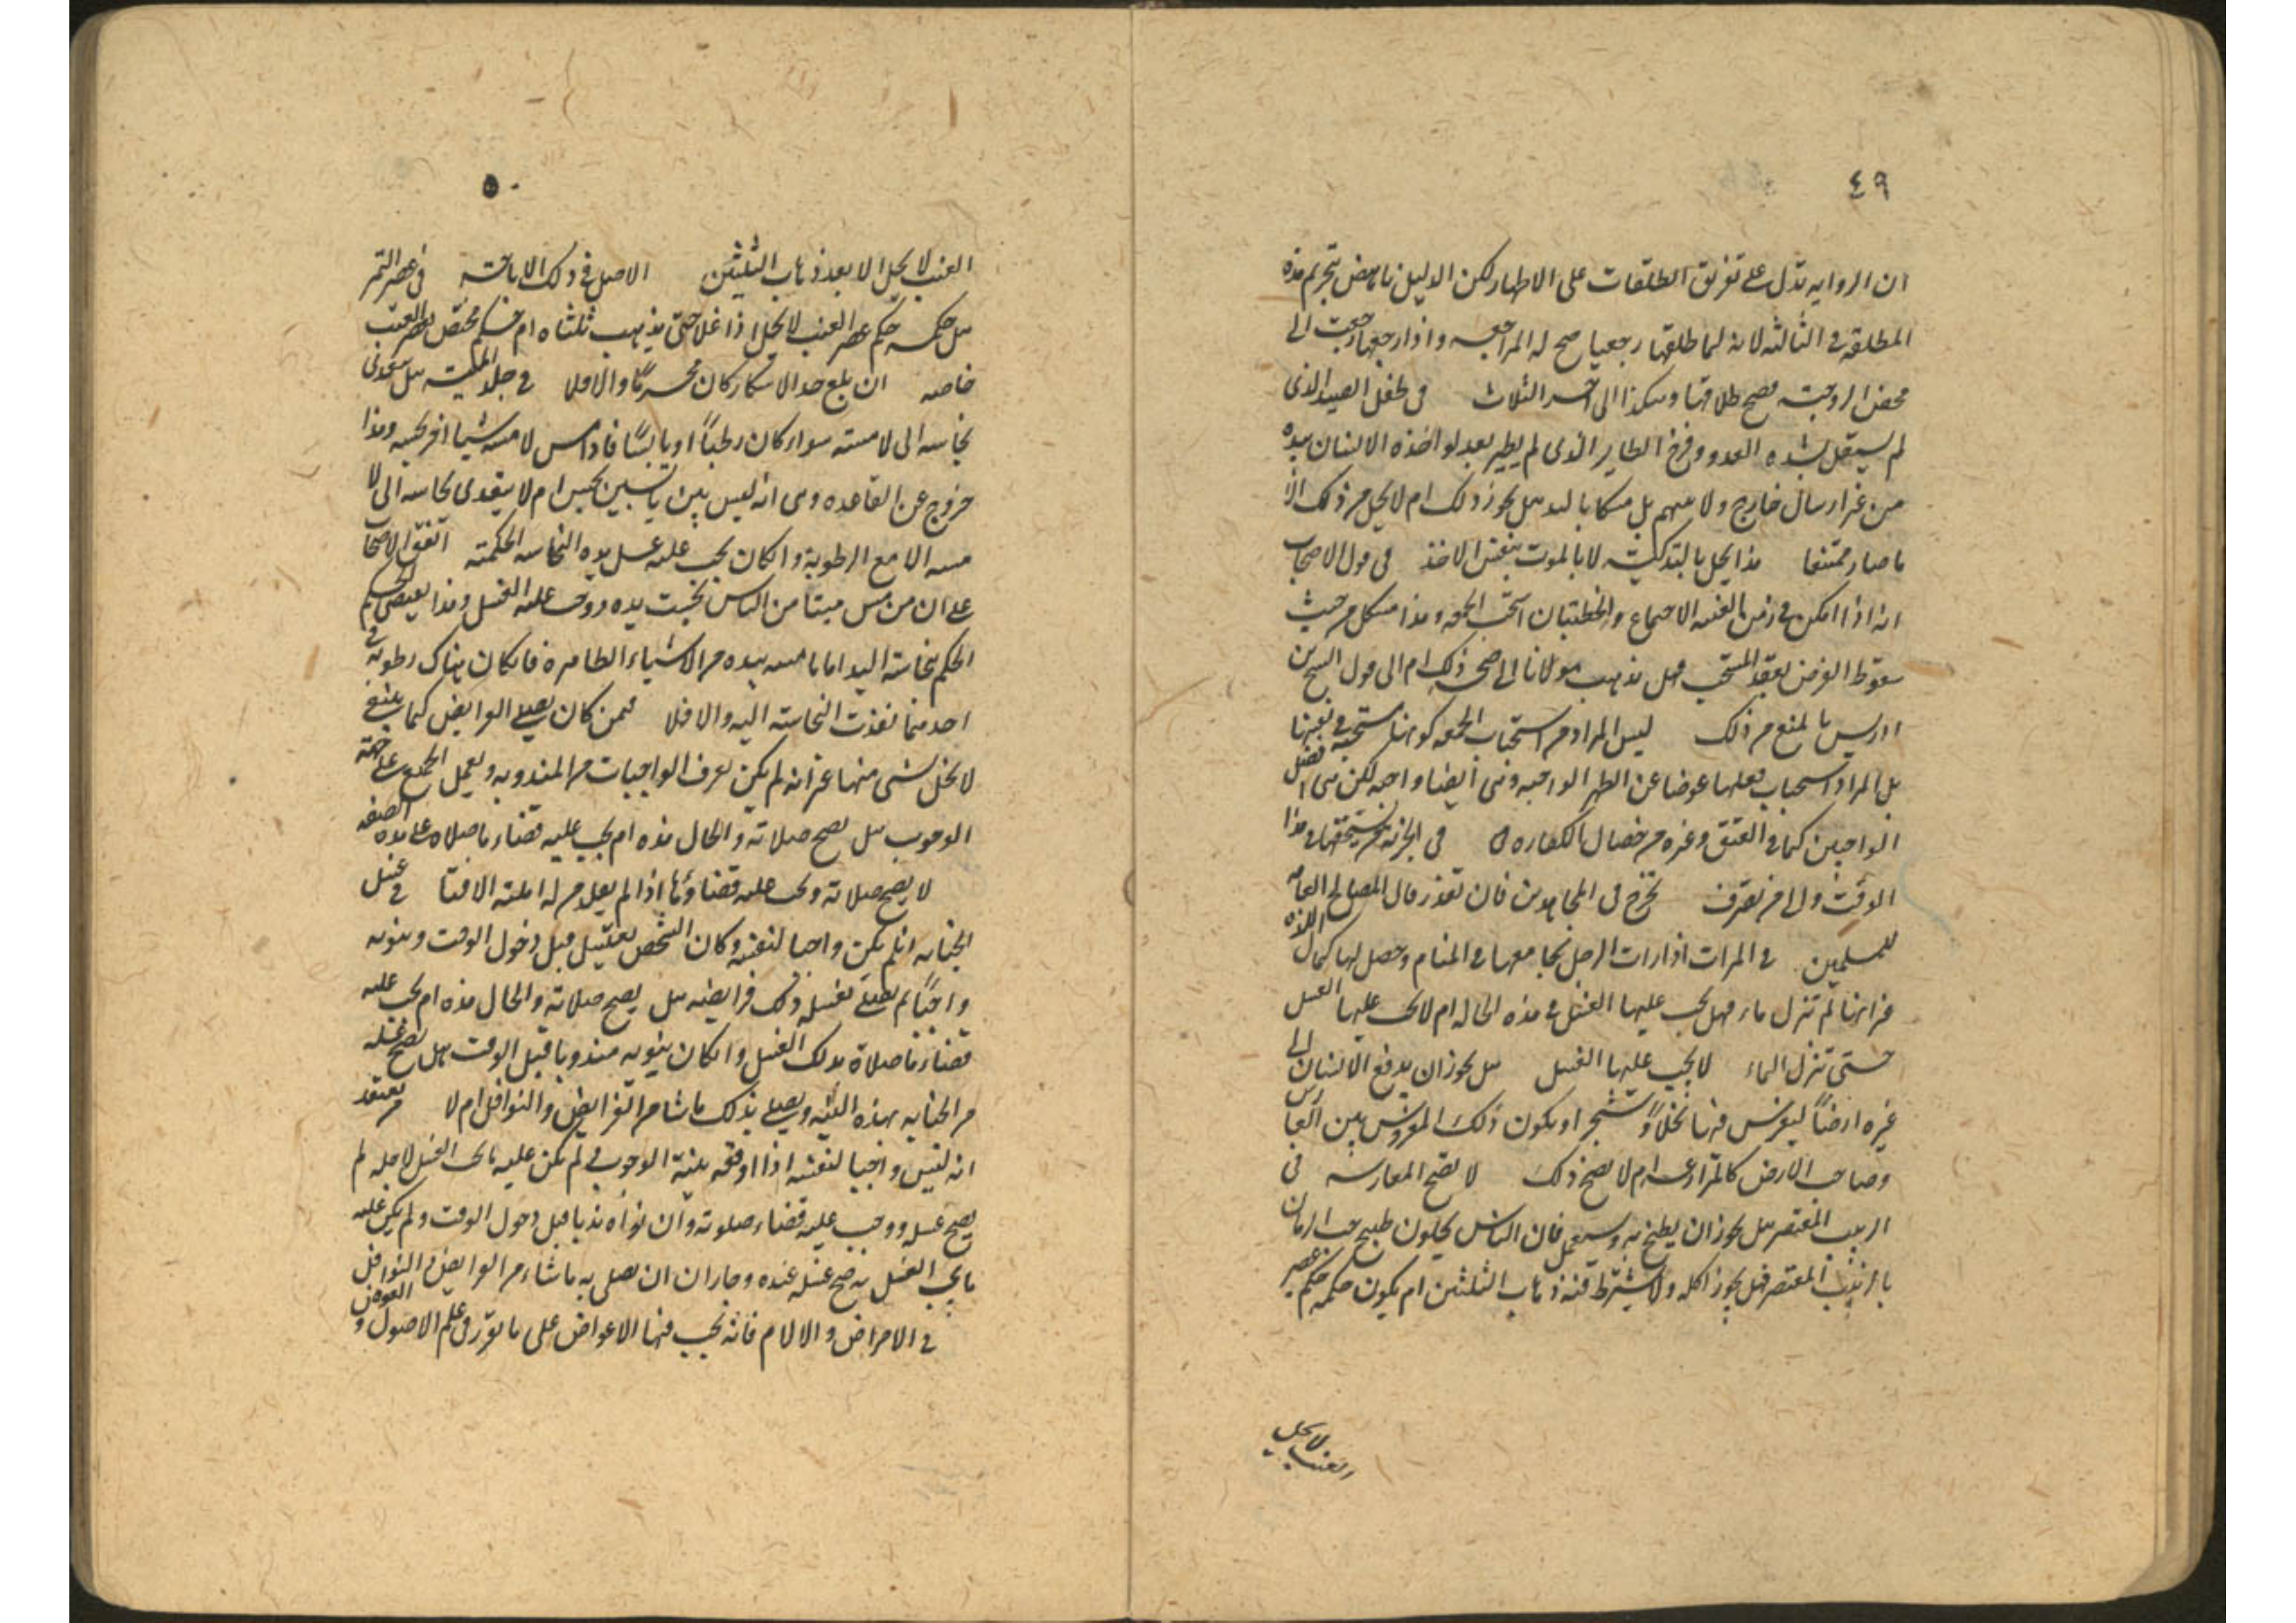 ٤٩
ان الروايه تدل على تفريق الطلقات على الاطهار لكن الدليل ناهض بتحريم هذه
المطلقه فى الثالثه لانه لما طلقها رجعيا صح له المراجعه واذا رجعها رجعت الى
محض الزوجيه فصح طلاقها وهكذا الى اخر الثلاث فى طفل الصيد الذى
لم يستقل بشده العدو وفرخ الطاير الذى لم يطير بعد لو اخذه الانسان بيده
من غير ارسال خارج ولا سهم بل مسكا باليد هل يجوز ذلك ام لا يحل من ذلك الا
ما صار ممتنعا هذا يحل بالتذكية لا بالموت بنفس الاخذ فى قول الاصحاب
انه اذا امكن فى زمن الغيبه الاجتماع والخطبتان استحب الجمعه وهذا مشكل من حيث
سقوط الفرض بفعل المستحب فهل يذهب مولانا الى صحه ذلك ام الى قول الشيخ بن
ادريس بالمنع من ذلك ليس المراد من استحباب الجمعه كونها مستحبة فى نفسها
بل المراد استحباب فعلها عوضا عن الظهر الواجبه وهى ايضا واجبه لكن هى افضل
الواجبين كما فى العتق وغيره من خصال الكفاره فى الجزيه من يستحقها فى هذا
الوقت والى من تصرف تخرج فى المجاهدين فان تعذر فالى المصالح العامه
للمسلمين فى المرات اذا رات الرجل يجامعها فى المنام وحصل لها كمال اللذه
غير انها لم تنزل ماء فهل يجب عليها الغسل فى هذه الحاله ام لا يجب عليها الغسل
حتى تنزل الماء لا يجب عليها الغسل هل يجوز ان يدفع الانسان الى
غيره ارضاً ليغرس فيها نخلاً وشجر او يكون ذلك المغروس بين الغارس
وصاحب الارض كالمزارعه ام لا يصح ذلك لا تصح المغارسه فى
الزبيب المعتصر هل يجوز ان يطبخ به ويستعمل فان الناس يحلون طبيخ حب الرمان
بالزبيب المعتصر فهل يجوز اكله ولا يشترط فيه ذهاب الثلثين ام يكون حكمه حكم عصير
العنب لا يحل
٥٠
العنب لا يحل الا بعد ذهاب الثلثين الاصل فى ذلك الاباحة فى عصير التمر
هل حكمه حكم عصير العنب لا يحل اذا غلا حتى يذهب ثلثاه ام حكم مختص بعصير العنب
خاصه ان بلغ حد الاسكار كان محرماً والا فلا فى جلد الميتة هل تتعدى
نجاسه الى لامسته سواء كان رطباً او يابسًا فاذا مس لامسه شيئا اخر نجسه وهذا
خروج عن القاعده وهى انه ليس بين يابسين نجس ام لا يتعدى نجاسه الى لا
مسه الا مع الرطوبة وان كان يجب عليه غسل يده النجاسه الحكمية اتفق الاصحاب
على ان من مس ميتا من الناس نجست يده ووجب عليه الغسل وهذا يعطى الحكم
الحكم بنجاسة اليد اما ما مسه بيده من الاشياء الطاهره فان كان هناك رطوبة فى
احدهما نفذت النجاسة اليه والا فلا فيمن كان يصلى الفرايض كما ينبغى
لا يخل بشى منها غير انه لم يكن يعرف الواجبات من المندوبه ويعمل الجميع على جهة
الوجوب هل يصح صلاته والحال هذه ام يجب عليه قضاء ما صلاه على هذه الصفه
لا يصح صلاته ويجب عليه قضاؤها اذا لم يقلد من له اهلية الافتا فى غسل
الجنابه ان لم يكن واجبا لنفسه وكان الشخص يغتسل قبل دخول الوقت وينويه
واجباً لم يصلى بغسله ذلك فرايضه هل يصح صلاته والحال هذه ام يجب عليه
قضاء ما صلاه بذلك الغسل وان كان ينويه مندوبا قبل الوقت هل يصح غسله
من الجنابه بهذه النيّه ويصلى بذلك ما شا من الفرايض والنوافل ام لا من يعتقد
انه ليس واجبا لنفسه اذا اوقعه بنية الوجوب فى لم يكن عليه ما يجب الغسل لاجله لم
يصح غسله ووجب عليه قضاء صلوته وان نواه ندبا قبل دخول الوقت ولم يكن عليه
ما يجب الغسل به صح غسله عنده وجاز ان يصلى به ما شاء من الفرايض والنوافل
فى الامراض والالام فانه يجب فيها الاعواض على ما تقرر فى علم الاصول و العوض